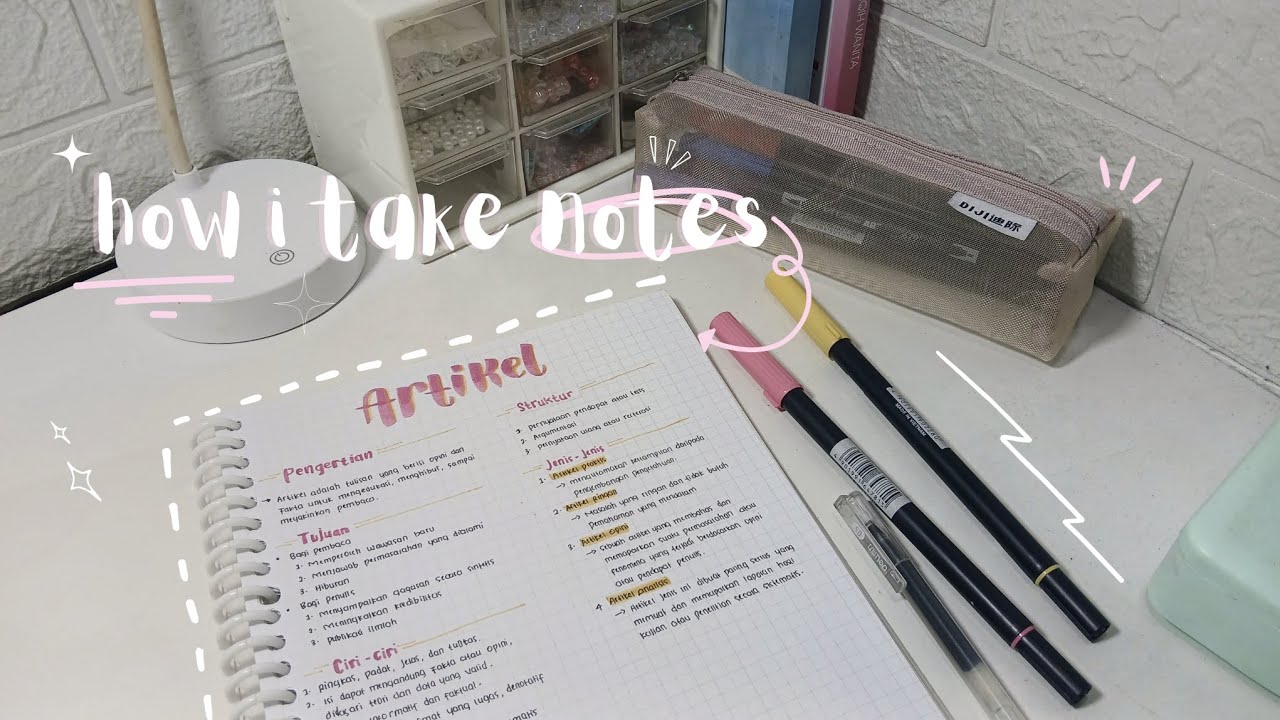 how i take notes
FIQIH WANITA
DIJI迪际
Artikel
Pengertian
→ Artikel adalah tulisan yang berisi opini dan
fakta untuk mengedukasi, menghibur, sampai
meyakinkan pembaca.
Tujuan
• Bagi pembaca
1. Memperoleh wawasan baru
2. Menjawab permasalahan yang dialami
3. Hiburan
• Bagi penulis
1. Menyampaikan gagasan secara sintetis
2. Meningkatkan kredibilitas
3. Publikasi ilmiah
Ciri - Ciri
1. Ringkas, padat, jelas, dan tuntas.
2. Isi dapat mengandung fakta atau opini,
dikasari teori dan data yang valid.
informatif dan faktual.
yang lugas, denotatif
Struktur
1. Pernyataan pendapat atau tesis
2. Argumentasi
3. Pernyataan ulang atau reiterasi
Jenis - Jenis
1. Artikel praktis
→ mengutamakan keterampilan daripada
pengembangan pengetahuan
2. Artikel ringan
→ Masalah yang ringan dan tidak butuh
pemahaman yang mendalam
3. Artikel opini
→ Sebuah artikel yang membahas dan
memaparkan suatu permasalahan atau
fenomena yang terjadi berdasarkan opini
atau pendapat penulis.
4. Artikel analisis
→ Artikel jenis ini dibuat paling serius yang
memuat dan memaparkan laporan hasil
kajian atau penelitian secara sistematis.